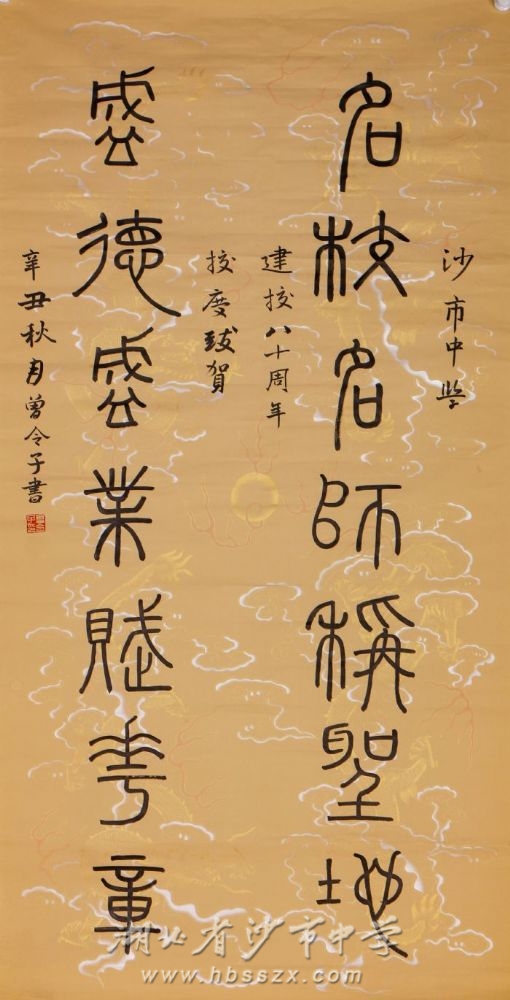 沙市中学
名校名师稱聖地
建校八十周年
校慶致賀
盛德盛業賦華章
辛丑秋月曾令子書
湖北省沙市中学
www.hbsszx.com